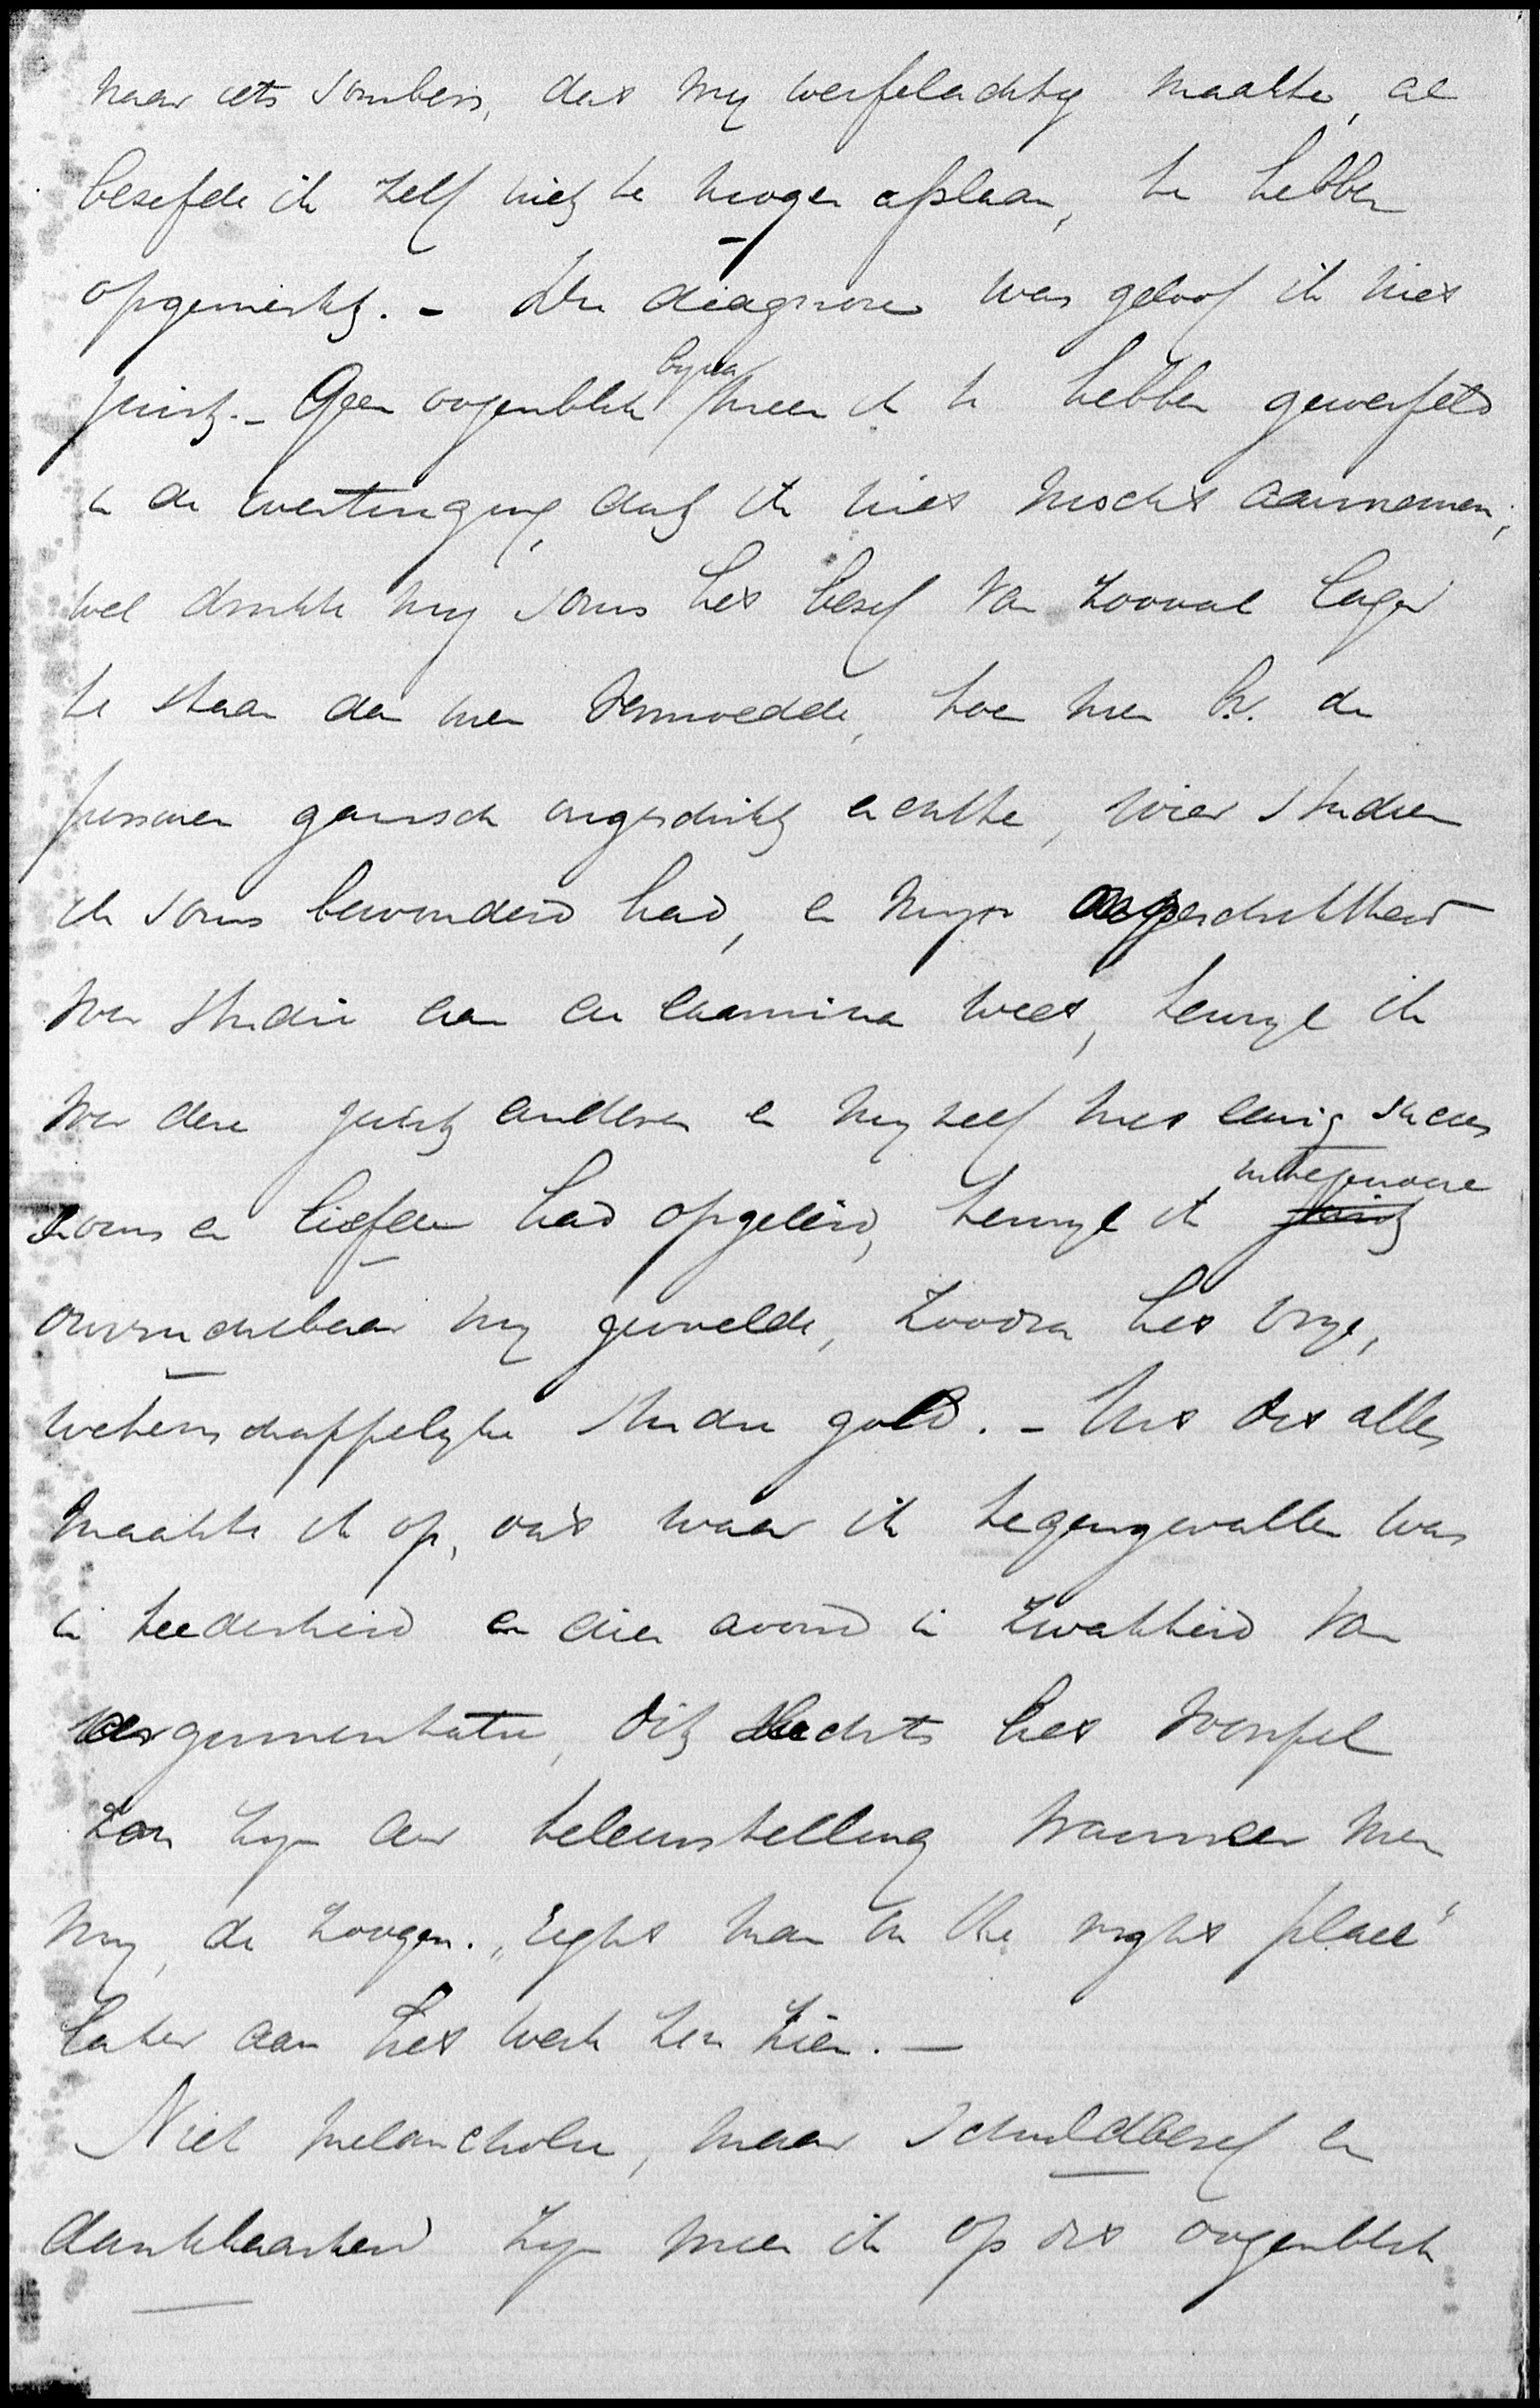 naar iets sombers, dat my twijfelachtig maakte, al
besefde ik zelf niet te mogen afslaan, te hebben
opgemerkt. - Die diagnose was geloof ik niet
juist. - Geen oogenblik byna meen ik te hebben getwijfeld
in de overtuiging, dat ik niet mocht aannemen;
wel drukte my soms het besef van zooveel lager
te staan dan men vermoedde, hoe men bv. de
personen gansch ongeschikt achtte, wier studien
ik soms bewonderd had, en myn ongeschiktheid
voor studie aan en examina weet, terwyl ik
voor deze juist anderen en myzelf met eenig succes
soms en liefde had opgeleid, terwyl ik integendeel
onvruchtbaar my gevoelde, zoodra het vrye,
wetenschappelyke studie gold. - Uit dit alles
maakte ik op, dat waar ik tegengevallen was
in teederheid en dien avond in zwakheid van
argumentatie, dit slechts het voorspel
zou zyn der teleurstelling wanneer men
my, de zoogen. „right man in the right place"
later aan het werk zou zien. -
Niet melancholie, maar schuldbesef en
dankbaarheid zyn meen ik op dit oogenblik